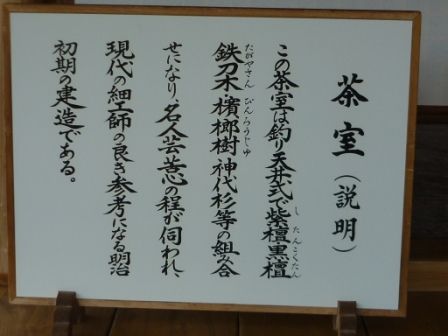 茶室(説明)
この茶室は釣り天井式で紫檀黒檀
したんこくたん
鉄刀木 檳榔樹 神代杉等の組み合
たがやさん びんろうじゅ
せになり、名人芸苦心の程が伺われ、
現代の細工師の良き参考になる明治
初期の建造である。